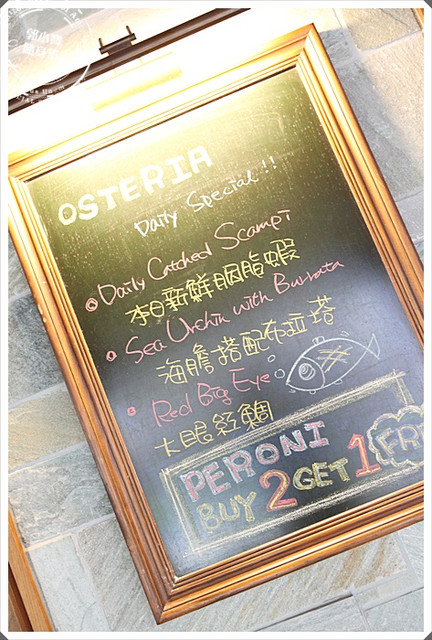 OSTERIA
Daily Special!!
Daily Catched Scampi
本日新鮮胭脂蝦
Sea Urchin with Burrata
海膽搭配布拉塔
Red Big Eye
大眼紅鯛
PERONI
BUY 2 GET 1 FR